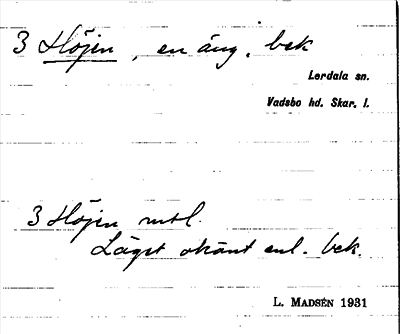 3 Höjen, en äng, bek
Lerdala sn.
Vadsbo hd. Skar. l.
3 Höjen mtl.
Läget okänt enl. bek.
L. MADSÉN 1931